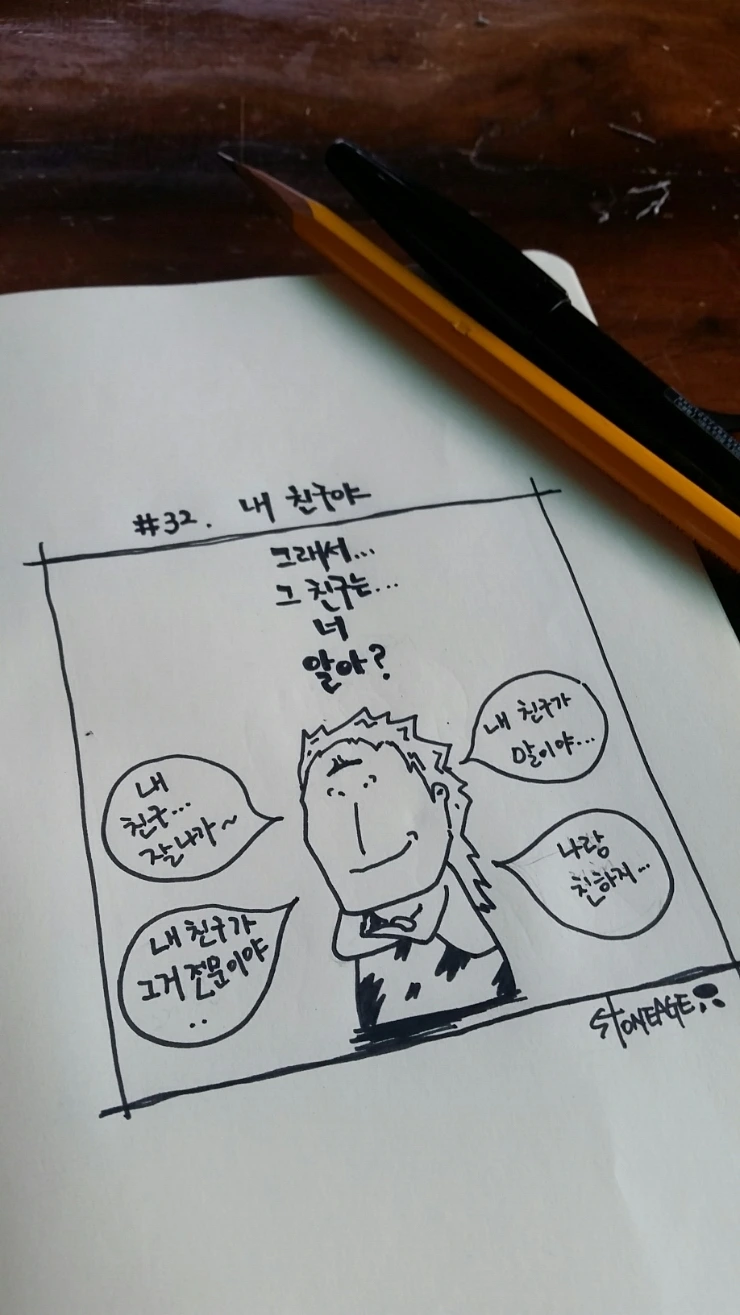 #32. 내 친구야
그래서...
그 친구는...
너
알아?
내 친구가
말이야...
내
친구...
잘나가~
나랑
친하지...
내 친구가
그거 전문이야
..
STONEAGE